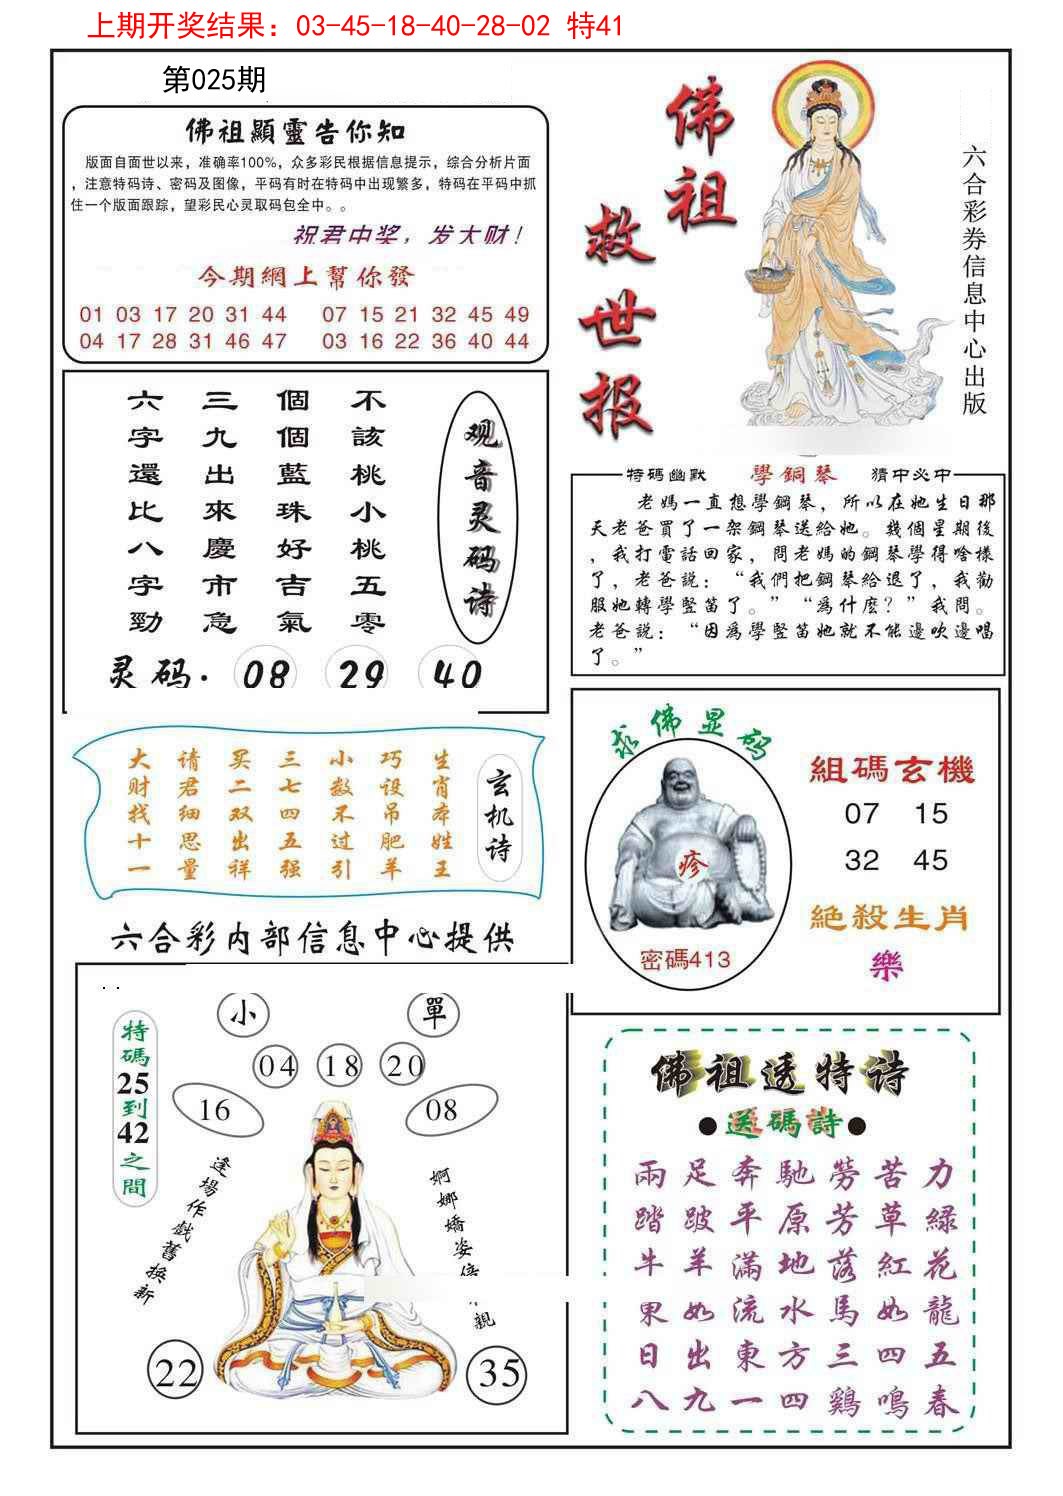 上期开奖结果：03-45-18-40-28-02 特41
第025期
佛祖顯靈告你知
版面自面世以来，准确率100%，众多彩民根据信息提示，综合分析片面
，注意特码诗、密码及图像，平码有时在特码中出现繁多，特码在平码中抓
住一个版面跟踪，望彩民心灵取码包全中。。
祝君中奖，发大财！
今期網上幫你發
01 03 17 20 31 44 07 15 21 32 45 49
04 17 28 31 46 47 03 16 22 36 40 44
佛祖
救世报
六合彩券信息中心出版
观音灵码诗
不該桃小桃五零
個個藍珠好吉氣
三九出來慶市急
六字還比八字勁
灵码. 08 29 40
特碼幽默 學鋼琴 猜中必中
老媽一直想學鋼琴，所以在她生日那
天老爸買了一架鋼琴送給她。幾個星期後
，我打電話回家，問老媽的鋼琴學得啥樣
了，老爸説：“我們把鋼琴給退了，我勸
服她轉學豎笛了。”“爲什麽？”我問。
老爸説：“因爲學豎笛她就不能邊吹邊唱
了。”
玄机诗
生肖本姓王
巧设吊肥羊
小数不过引
三七四五强
买二双出祥
请君细思量
大财找十一
求佛显码
疹
密碼413
組碼玄機
07 15
32 45
絕殺生肖
樂
六合彩内部信息中心提供
. .
特碼25到42之間
小 單
04 18 20
16 08
逢場作戲舊换新
婀娜嬌姿 親
22 35
佛祖透特诗
●送碼詩●
兩足奔馳勞苦力
踏跛平原芳草緑
牛羊滿地落紅花
果如流水馬如龍
日出東方三四五
八九一四鷄鳴春